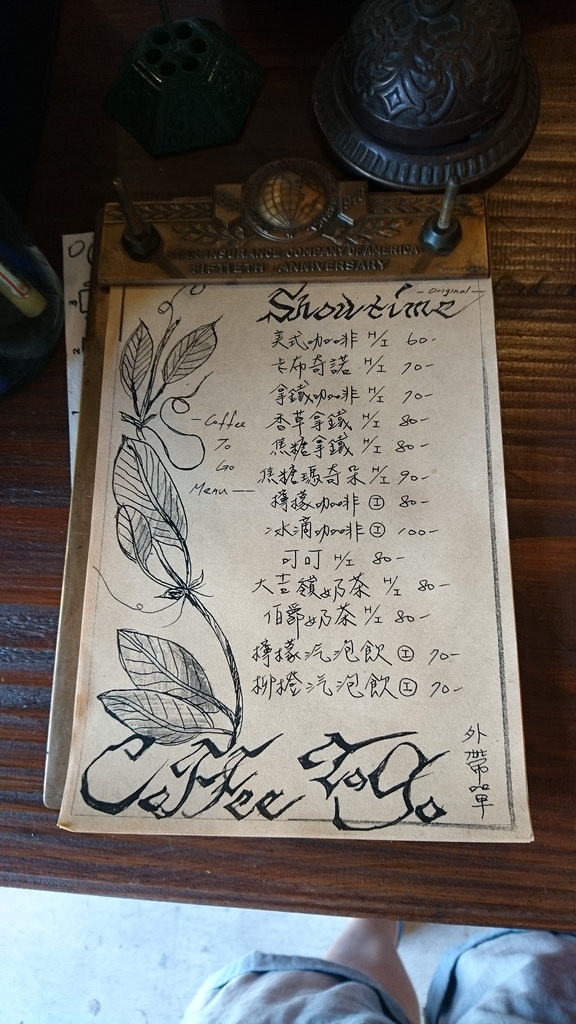 INSURANCE COMPANY OF AMERICA
FIFTIETH ANNIVERSARY
Showtime
- Original -
美式咖啡 H/I 60-
卡布奇諾 H/I 70-
拿鐵咖啡 H/I 70-
香草拿鐵 H/I 80-
焦糖拿鐵 H/I 80-
焦糖瑪奇朵 H/I 90-
檸檬咖啡 I 80-
冰滴咖啡 I 100-
叮叮 H/I 80-
大吉嶺奶茶 H/I 80-
伯爵奶茶 H/I 80-
檸檬汽泡飲 I 70-
柳橙汽泡飲 I 70-
- Coffee
To
Go
Menu -
Coffee To Go
外帶單